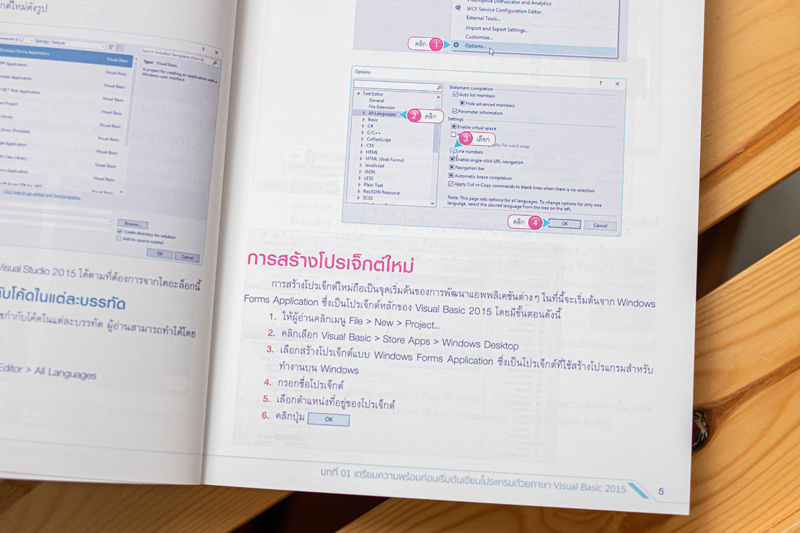 ก์ใหม่ดังรูป
Visual Basic
Type: Visual Basic
A project for creating an application with a
Windows user interface
Click here to go online and find templates.
Browse...
Create directory for solution
Add to source control
OK
Cancel
Visual Studio 2015 ได้ตามที่ต้องการจากไดอะล็อกนี้
กับโค้ดในแต่ละบรรทัด
กำกับโค้ดในแต่ละบรรทัด ผู้อ่านสามารถทำได้โดย
Editor > All Languages
WCF Service Configuration Editor
External Tools...
Import and Export Settings...
Customize...
คลิก 1
Options...
Options
Text Editor
General
File Extension
All Languages
2 คลิก
Basic
C#
C/C++
CoffeeScript
CSS
HTML
HTML (Web Forms)
JavaScript
JSON
LESS
Plain Text
ResJSON Resource
SCSS
Statement completion
Auto list members
Hide advanced members
Parameter information
Settings
Enable virtual space
3 เลือก
Line numbers
Enable single-click URL navigation
Navigation bar
Automatic brace completion
Apply Cut or Copy commands to blank lines when there is no selection
Note: This page sets options for all languages. To change options for only one
language, select the desired language from the tree on the left.
คลิก 4
OK
Cancel
การสร้างโปรเจ็กต์ใหม่
การสร้างโปรเจ็กต์ใหม่ถือเป็นจุดเริ่มต้นของการพัฒนาแอพพลิเคชันต่างๆ ในที่นี้จะเริ่มต้นจาก Windows
Forms Application ซึ่งเป็นโปรเจ็กต์หลักของ Visual Basic 2015 โดยมีขั้นตอนดังนี้
1. ให้ผู้อ่านคลิกเมนู File > New > Project...
2. คลิกเลือก Visual Basic > Store Apps > Windows Desktop
3. เลือกสร้างโปรเจ็กต์แบบ Windows Forms Application ซึ่งเป็นโปรเจ็กต์ที่ใช้สร้างโปรแกรมสำหรับ
ทำงานบน Windows
4. กรอกชื่อโปรเจ็กต์
5. เลือกตำแหน่งที่อยู่ของโปรเจ็กต์
6. คลิกปุ่ม OK
บทที่ 01 เตรียมความพร้อมก่อนเริ่มต้นเขียนโปรแกรมด้วยภาษา Visual Basic 2015 5